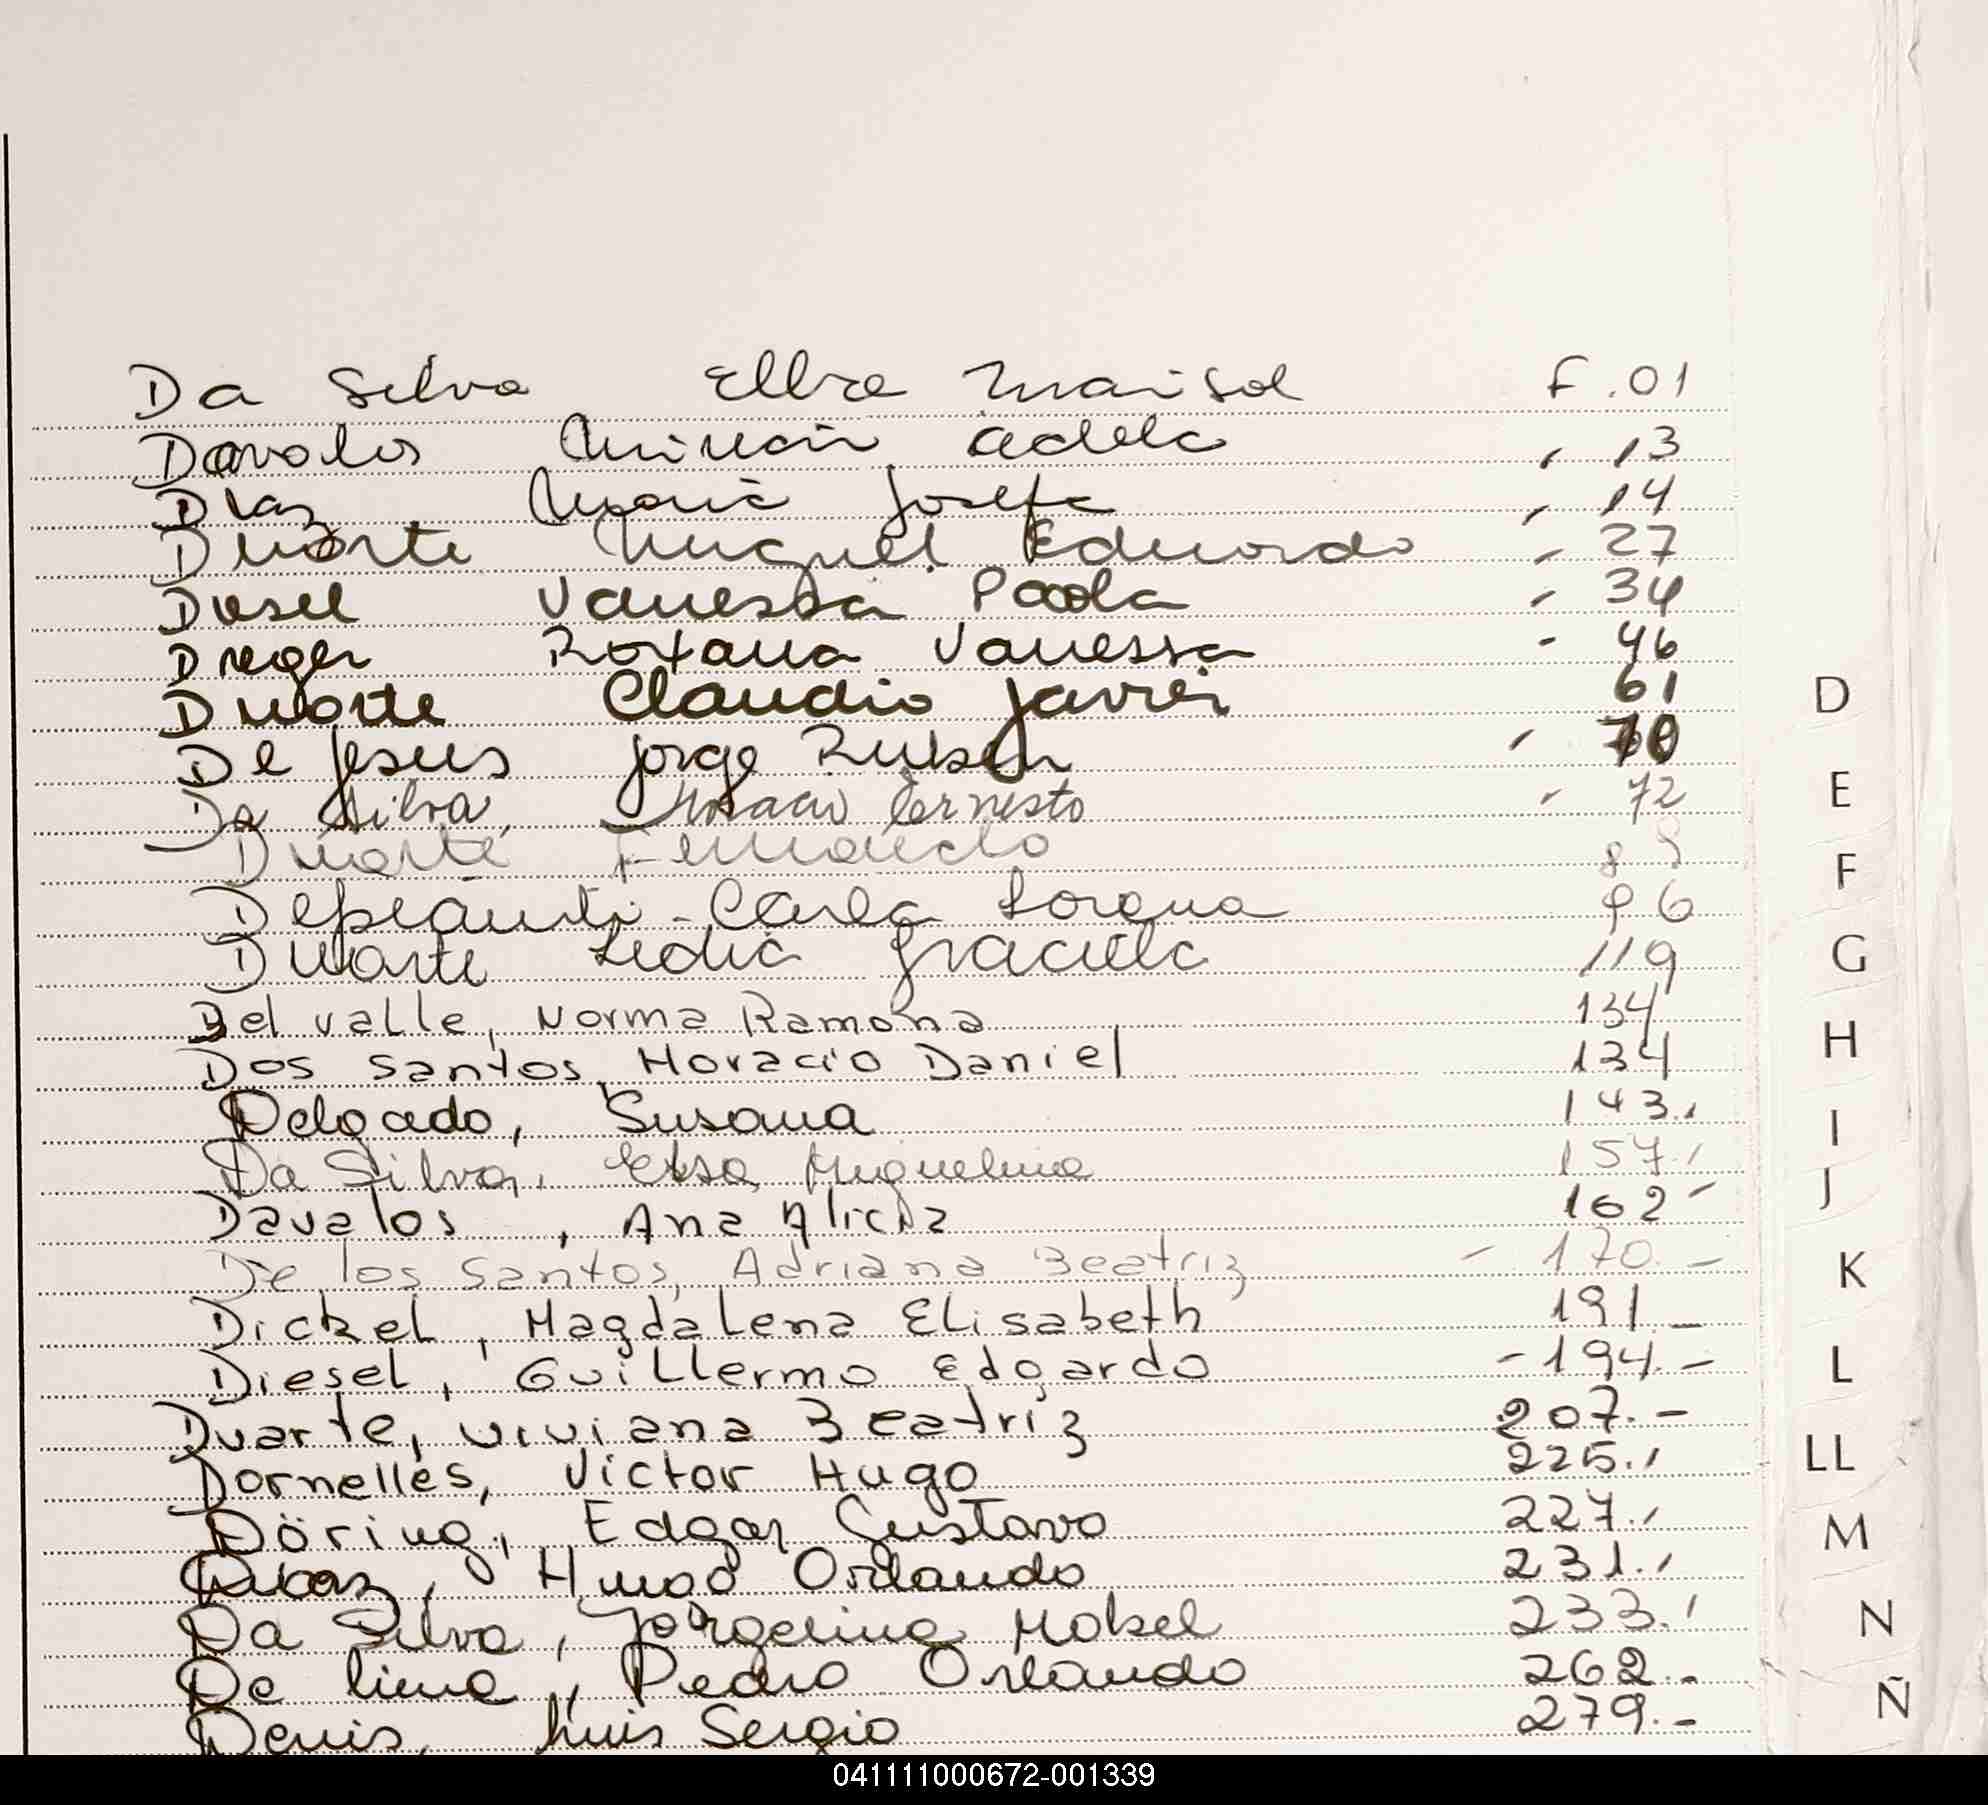 Da Silva Elba Marisol F. 01
Davalos Mirian Adela " 13
Diaz Maria Josefa " 14
Duarte Miguel Eduardo " 27
Diesel Vanessa Paola " 34
Dreger Roxana Vanessa " 46
Duarte Claudio Javier 61
De Jesus Jorge Ruben " 70
Da Silva, Ernesto " 72
Duarte Fernando
Carla Lorena 96
Duarte Lidia Graciela 119
Del valle, Norma Ramona 134
Dos Santos, Horacio Daniel 134
Delgado, Susana 143.,
Da Silva, Elsa Miguelina 157.,
Davalos, Ana Alicia 162 -
De los Santos, Adriana Beatriz - 170. -
Dickel, Magdalena Elisabeth 191 -
Diesel, Guillermo Edgardo - 194. -
Duarte, Viviana Beatriz 207. -
Dornelles, Victor Hugo 225.,
Döring, Edgar Gustavo 227.,
Hugo Orlando 231.,
Da Silva, Jorgelina Mabel 233.,
De lima, Pedro Orlando 262.-
Denis, Luis Sergio 279.-
D
E
F
G
H
I
J
K
L
LL
M
N
Ñ
041111000672-001339